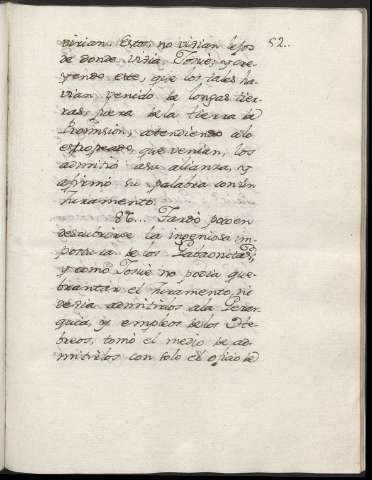 52..
virian. Estos, no vivian lejos
de donde vivia Josuè; y cre-
yendo este, que los tales ha-
vian venido de longas tier-
ras, fuera de la tierra de
Promision, atendiendo alo
estropeados, que venian, los
admitiò asu alianza, y
afirmò su palabra con un
Juramento.
86... Tardò poco en
descubrirse la ingeniosa im-
postura de los Gabaonitas;
y como Josuè no podia que-
brantar el Juramento, ni
devia admitirlos ala Gerar-
quia, y empleos delos He-
breos, tomò el medio de ad-
mitirlos con solo el oficio de